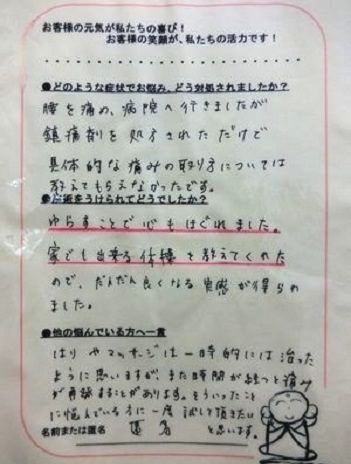 お客様の元気が私たちの喜び！
お客様の笑顔が、私たちの活力です！
●どのような症状でお悩み、どう対処されましたか？
腰を痛め、病院へ行きましたが
鎮痛剤を処方されただけで
具体的な痛みの取り方については
教えてもらえなかったです。
●施術をうけられてどうでしたか？
ゆらすことで心もほぐれました。
家でも出来る体操を教えてくれた
ので、だんだん良くなる実感が得られ
ました。
●他の悩んでいる方へ一言
はりやマッサージは一時的には治った
ように思いますが、また時間が経つと痛み
が再発することがあります。そういったこと
に悩んでいる方に一度試して頂きたい
名前または匿名 匿名 と思います。